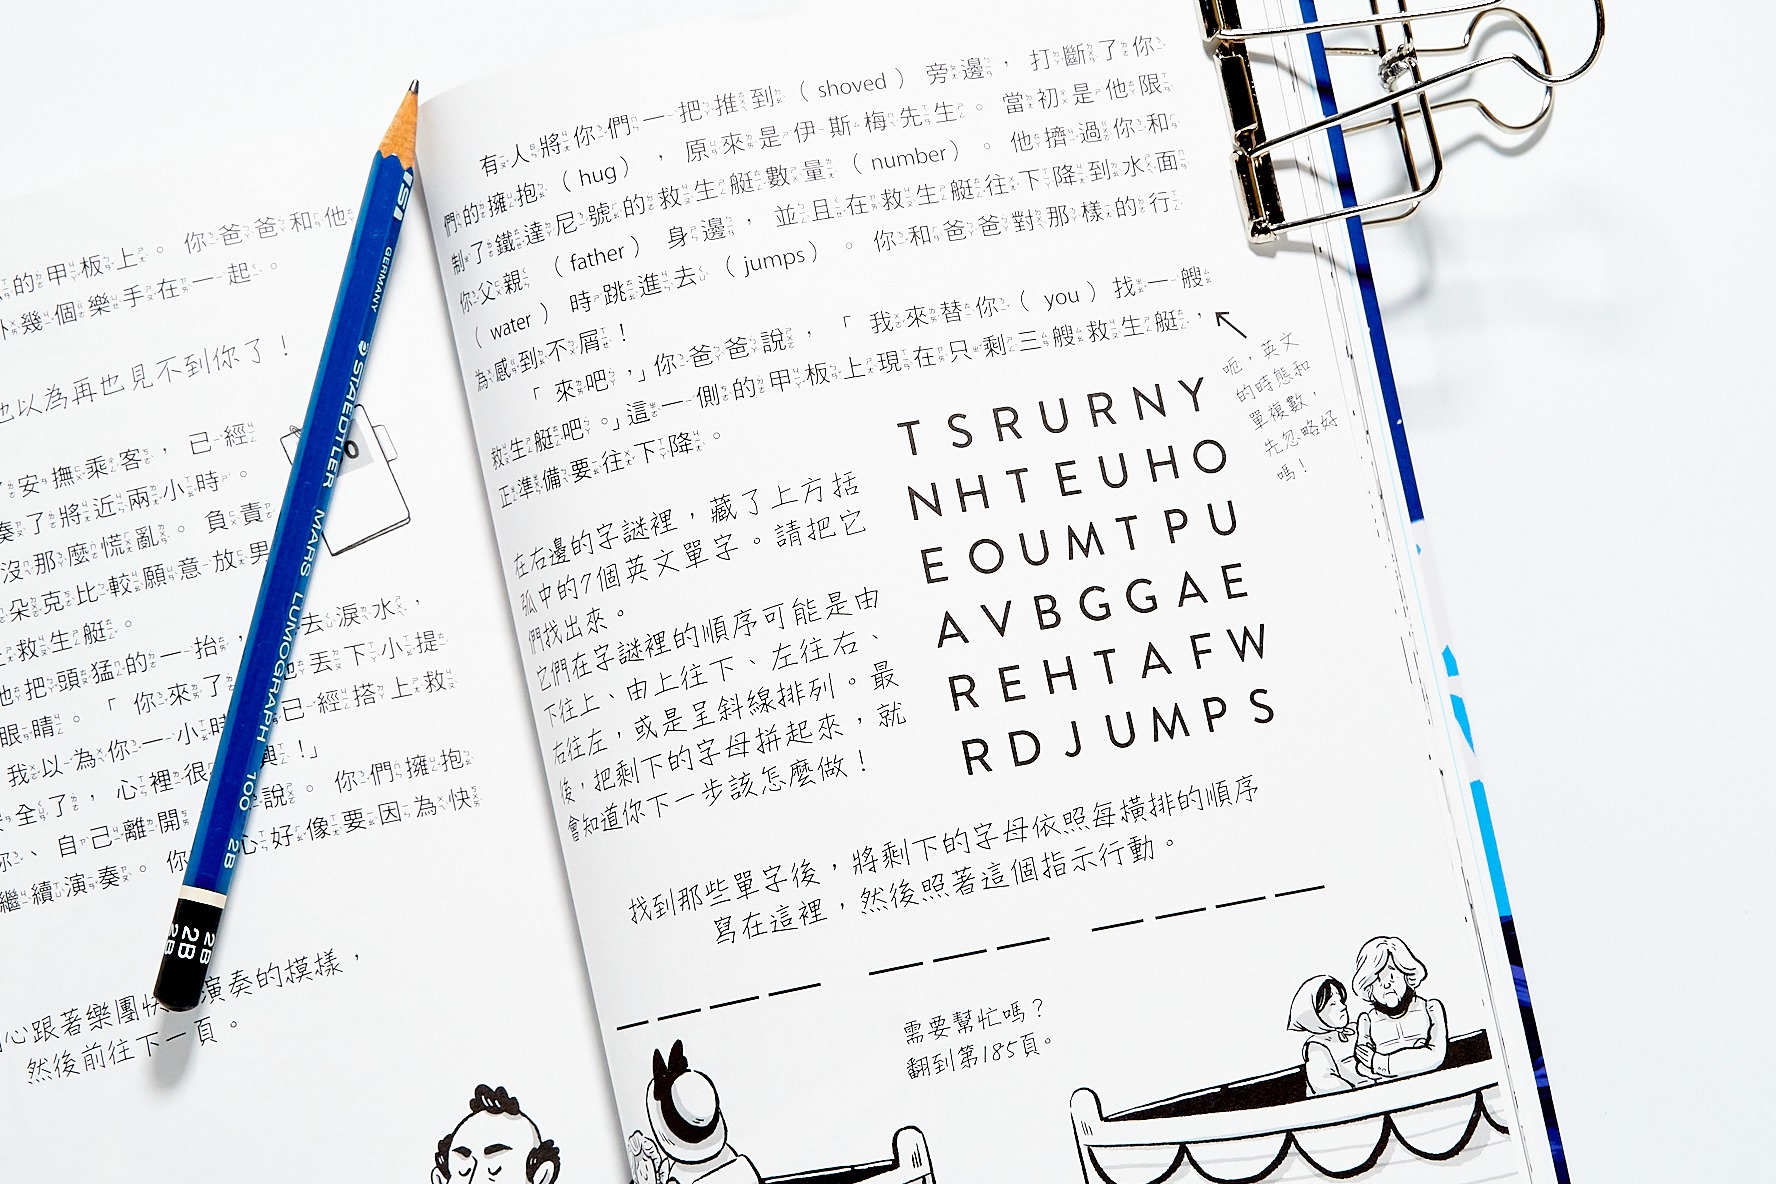 的甲板上。你爸爸和他
外幾個樂手在一起。
他以為再也見不到你了！
安撫乘客，已經
奏了將近兩小時。
沒那麼慌亂。負責
朵克比較願意放男
上救生艇。
他把頭猛的一抬，
去淚水，
把丟下小提
眼睛。「你來了
已經搭上救
我以為你一小時
全了，心裡很
興！」
你、自己離開
說。你們擁抱
繼續演奏。你
心好像要因為快
心跟著樂團快
演奏的模樣，
然後前往下一頁。
STAEDTLER MARS LUMOGRAPH 100 2B
GERMANY
2B 2B 2B
有人將你們一把推到（shoved）旁邊，打斷了你
們的擁抱（hug），原來是伊斯梅先生。當初是他限
制了鐵達尼號的救生艇數量（number）。他擠過你和
你父親（father）身邊，並且在救生艇往下降到水面
（water）時跳進去（jumps）。你和爸爸對那樣的行
為感到不屑！
「來吧，」你爸爸說，「我來替你（you）找一艘
救生艇吧。」這一側的甲板上現在只剩三艘救生艇，
正準備要往下降。
呃，英文
的時態和
單複數，
先忽略好
嗎！
在右邊的字謎裡，藏了上方括
弧中的7個英文單字。請把它
們找出來。
它們在字謎裡的順序可能是由
下往上、由上往下、左往右、
右往左，或是呈斜線排列。最
後，把剩下的字母拼起來，就
會知道你下一步該怎麼做！
TSRURNY
NHTEUHO
EOUMTPU
AVBGGAE
REHTAFW
RDJUMPS
找到那些單字後，將剩下的字母依照每橫排的順序
寫在這裡，然後照著這個指示行動。
需要幫忙嗎？
翻到第185頁。